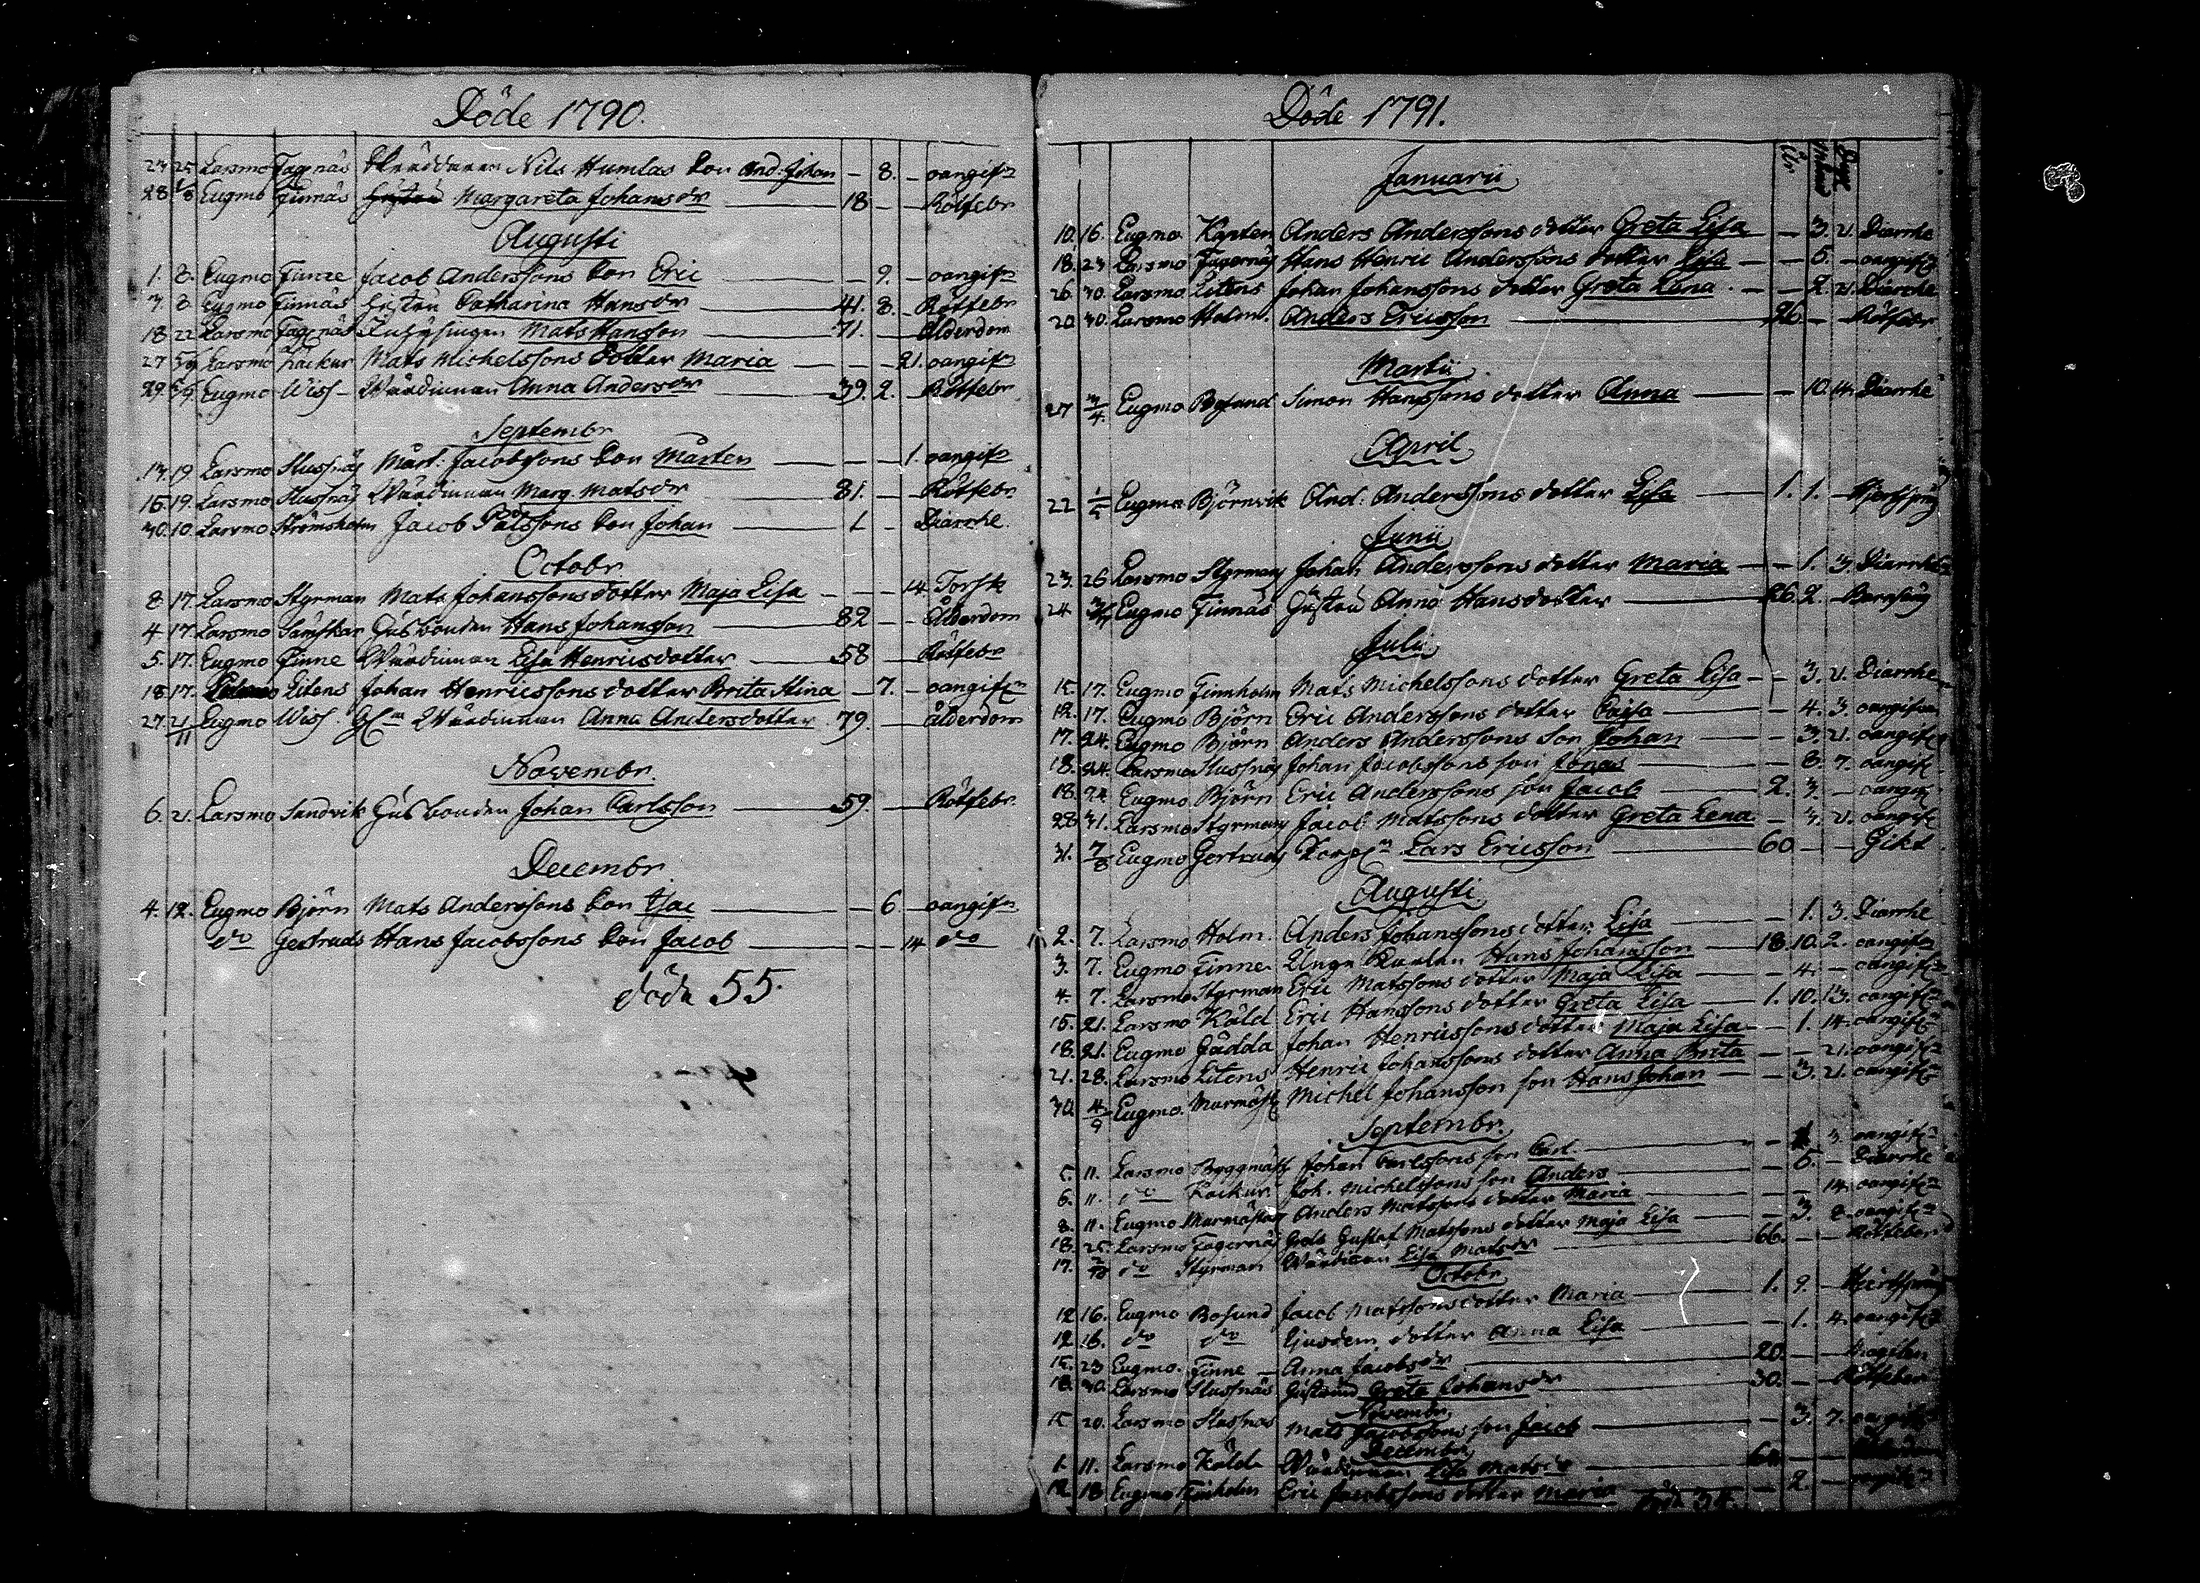 Döde 1790.
23 25 Larsmo Fagernäs Skräddaren Nils Humlas Son And. Johan — 8. — oangifn
28 1/8 Eugmo Finnäs Margareta Johansdr 18 — — Rötfebr
Augusti
1. 8. Eugmo Finne Jacob Anderssons Son Eric — 9. — oangifn
3. 8. Eugmo Finnäs Catharina Hansdr 41. 8. — Rötfebr
18 22 Larsmo Fagernäs Mats Hansson 71. — — Ålderdom
27 5/9 Larsmo Kackur Mats Michelssons Dotter Maria — — 21. oangifn
29. 5/9 Eugmo Wiss Wärdinnan Anna Andersdr 39. 2. — Rötfebr
Septembr
13. 19 Larsmo Slussnäs Mårt. Jacobssons Son Mårten — — 1. oangifn
16 19. Larsmo Slussnäs Wärdinnan Marg. Matsdr 81. — — Rötfebr
30. 10. Larsmo Strömsholm Jacob Pålssons Son Johan 1. — Diarrhe.
Octobr
8 17. Larsmo Styrman Mats Johanssons dotter Maja Lisa — — 14 Torsk
4 17. Larsmo Sämskar Husbonden Hans Johansson 82 — — Ålderdom
5. 17. Eugmo Finne Wärdinnan Lisa Henricsdotter 58 — — Rötfebr
18 17. Larsmo Litens Johan Henricssons dotter Brita Stina — 7. — oangifn
27. 21/11 Eugmo Wiss. Gl. Wärdinnan Anna Andersdotter 79. — — ålderdom
Novembr.
6. 21. Larsmo Sandvik Husbonden Johan Carlsson 59. — — Rötfebr
Decembr
4. 12. Eugmo Björn Mats Anderssons Son Isac — 6. — oangifn
do Gertruds Hans Jacobssons Son Jacob — — 14 do
döda 55.
Döde 1791.
År Månad Dagar
Januarii
10. 16. Eugmo Kapten Anders Anderssons dotter Greta Lisa — 3. 21. Diarrhe
18. 23 Larsmo Fagernäs Hans Henric Anderssons dotter Lisa — 5. — oangifn
26. 30. Larsmo Litens Johan Johanssons dotter Greta Lena — 2. 21. Diarrhe
20. 30. Larsmo Holm. Anders Ericsson 26 — — Rötfebr
Martii
27 3/4 Eugmo Bosund Simon Hanssons dotter Anna — 10. 14. Diarrhe
April
22 1/5 Eugmo Björnvik And. Anderssons dotter Lisa 1. 1. —
Junii
23. 26 Larsmo Styrmans Johan Anderssons dotter Maria — 1. 3. Diarrhe
24 Eugmo Finnäs Anna Hansdotter 26. 2. — Barnsäng
Julii
15. 17. Eugmo Finnholm Mats Michelssons dotter Greta Lisa — 3. 21. Diarrhe
12. 17. Eugmo Björn Eric Anderssons dotter Caisa — 4. 3. oangifn
17. 24. Eugmo Björn Anders Anderssons Son Johan — 3. 21. oangifn
18. 24. Larsmo Slussnäs Johan Jacobssons son Jonas — 8. 7. oangifn
18. 24 Eugmo Björn Eric Anderssons son Jacob 2. 3. — oangifn
28 31. Larsmo Styrmans Jacob Matssons dotter Greta Lena — 3. 21. oangifn
31. 7/8 Eugmo Gertruds Lars Ericsson 60. — — Gikt
Augusti
2. 7. Larsmo Holm. Anders Johanssons dotter Lisa — 1. 3. Diarrhe
3. 7. Eugmo Finne Unga Karlen Hans Johansson 18. 10. 2. oangifn
4. 7. Larsmo Styrman Eric Matssons dotter Maja Lisa — 4. — oangifn
15. 21. Larsmo Käld Eric Hanssons dotter Greta Lisa 1. 10. 13. oangifn
18. 21. Eugmo Gädda Johan Henricssons dotter Maja Lisa — 1. 14. oangifn
21. 28. Larsmo Litens Henric Johanssons dotter Anna Brita — — 21. oangifn
30. 4/9 Eugmo. Murmäst Michel Johansson son Hans Johan — 3. 21. oangifn
Septembr.
5. 11. Larsmo Byggmäst Johan Carlssons son Carl. 3. oangifn
6. 11. do Kackur Joh. Michelssons son Anders — 5. — Diarrhe
8. 11. Eugmo Murmästar Anders Matssons dotter Maria — — 14. oangifn
18. 25. Larsmo Fagernäs Gustaf Matssons dotter Maja Lisa — 3. 2. oangifn
17. 2/10 do Styrman Wärdinnan Lisa Matsdr 66. — — Rötfeber
Octobr
12 16. Eugmo Bosund Jacob Matssons dotter Maria 1. 9. —
12 16. do do Ejusdem dotter Anna Lisa — 1. 4. oangifn
15. 23 Eugmo. Finne Anna Jacobsdr 20. — —
18. 30. Larsmo Slussnäs Greta Johansdr 30. — — Rötfeber
Novembr
15 20. Larsmo Slussnäs Mats Jacobssons son Jacob — 3. 7. oangifn
Decembr
1. 11. Larsmo Käld Wärdinnan Lisa Matsdr — —
12 18 Eugmo Finholm Eric Jacobssons dotter Maria — 2. — oangifn